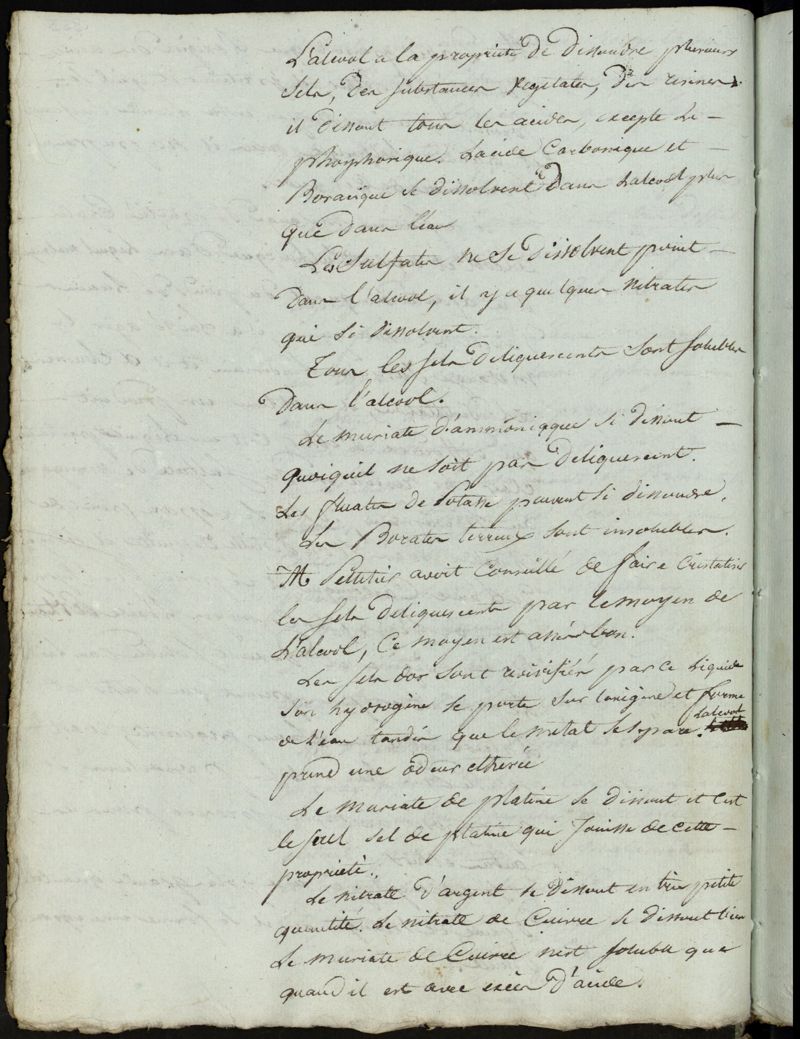 L'alcool a la propriété de dissoudre plusieurs
sels, des substances vegetales, des résines
il dissout tous les acides, excepté le
phosphorique. Lacide Carbonique et
Boracique se dissolvent dans Lalcool plus
que dans l'eau
Les sulfates ne se dissolvent point
dans l'alcool, il y a quelques nitrates
qui si dissolvent.
Tous les sels deliquescents sont solubles
dans l'alcool.
Le muriate d'ammoniaque si dissout
quoiquil ne soit pas deliquescent.
Les fluates de Potasse peuvent si dissoudre.
Les Borates terreux sont insolubles.
M Pelletier avoit Conseillé de faire Cristaliser
les sels deliquescents par le moyen de
L'alcool, Ce moyen est assés bon.
Les sels dor sont revivifiés par ce liquide
son hydrogène se porte sur loxigène et forme
de l'eau tandis que le metal se separe. Lalcool
prend une odeur etherée
Le muriate de platine se dissout et c'est
le seul sel de platine qui Jouisse de cette
propriété.
Le nitrate d'argent se dissout en très petite
quantité. Le nitrate de Cuivre se dissout bien
Le muriate de Cuivre n'est soluble que
quand il est avec excès d'acide.